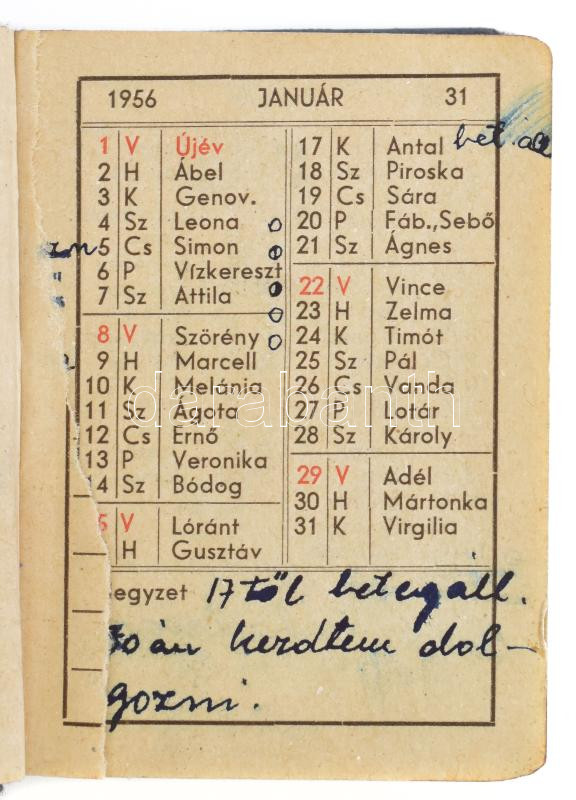 1956 JANUÁR 31
1 V Újév
2 H Ábel
3 K Genov.
4 Sz Leona
5 Cs Simon
6 P Vízkereszt
7 Sz Attila
8 V Szörény
9 H Marcell
10 K Melánia
11 Sz Ágota
12 Cs Ernő
13 P Veronika
14 Sz Bódog
5 V Lóránt
H Gusztáv
17 K Antal
18 Sz Piroska
19 Cs Sára
20 P Fáb.,Sebő
21 Sz Ágnes
22 V Vince
23 H Zelma
24 K Timót
25 Sz Pál
26 Cs Vanda
27 P Lotár
28 Sz Károly
29 V Adél
30 H Mártonka
31 K Virgilia
egyzet 17től betegáll.
kezdtem dol-
gozni.
darabanth